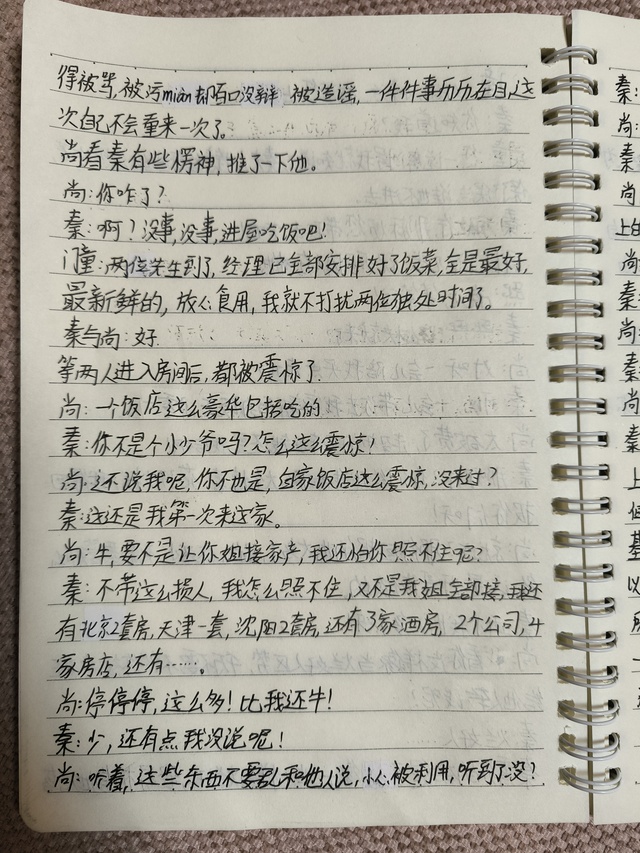 得被骂，被污mian却百口没辩，被造谣，一件件事历历在目，这
次自己不会重来一次了。
尚看秦有些愣神，推了一下他。
尚：你咋了？
秦：啊？没事，没事，进屋吃饭吧！
门童：两位先生到了，经理已全部安排好了饭菜，全是最好，
最新鲜的，放心食用，我就不打扰两位独处时间了。
秦与尚：好
等两人进入房间后，都被震惊了
尚：一个饭店这么豪华包括吃的
秦：你不是个小少爷吗？怎么这么震惊！
尚：还说我呢，你不也是，自家饭店这么震惊，没来过？
秦：这还是我第一次来这家。
尚：牛，要不是让你姐接家产，我还怕你照不住呢？
秦：不带这么损人，我怎么照不住，又不是我姐全部接，我还
有北京2套房，天津一套，沈阳2套房，还有3家酒房，2个公司，4
家房店，还有……。
尚：停停停，这么多！比我还牛！
秦：少，还有点我没说呢！
尚：听着，这些东西不要乱和他人说，小心被利用，听到了没？
秦：
尚：
上的
秦：
尚：
秦
尚
秦
尚
秦
上
但
基
以